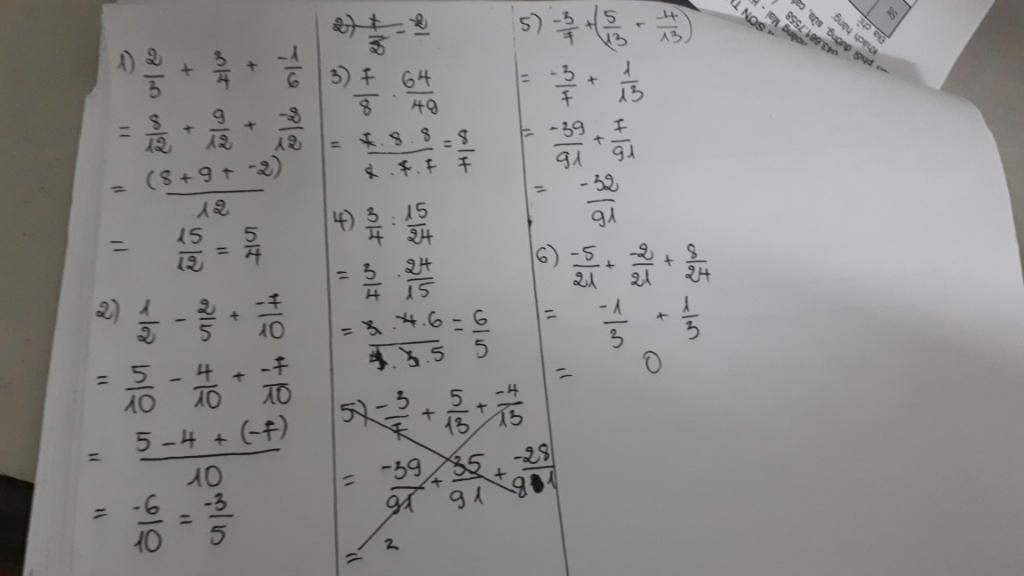 1) 2/3 + 3/4 + -1/6
= 8/12 + 9/12 + -2/12
= (8 + 9 + -2)/12
= 15/12 = 5/4
2) 1/2 - 2/5 + -7/10
= 5/10 - 4/10 + -7/10
= 5 - 4 + (-7)/10
= -6/10 = -3/5
3) 7/8 . 64/49
= 7 . 8 . 8/8 . 7 . 7 = 8/7
4) 3/4 : 15/24
= 3/4 . 24/15
= 3 . 4 . 6/4 . 3 . 5 = 6/5
5) -3/7 + 5/13 + -4/13
= -39/91 + 35/91 + -28/91
=
5) -3/7 + (5/13 + -4/13)
= -3/7 + 1/13
= -39/91 + 7/91
= -32/91
6) -5/21 + -2/21 + 8/24
= -1/3 + 1/3
= 0